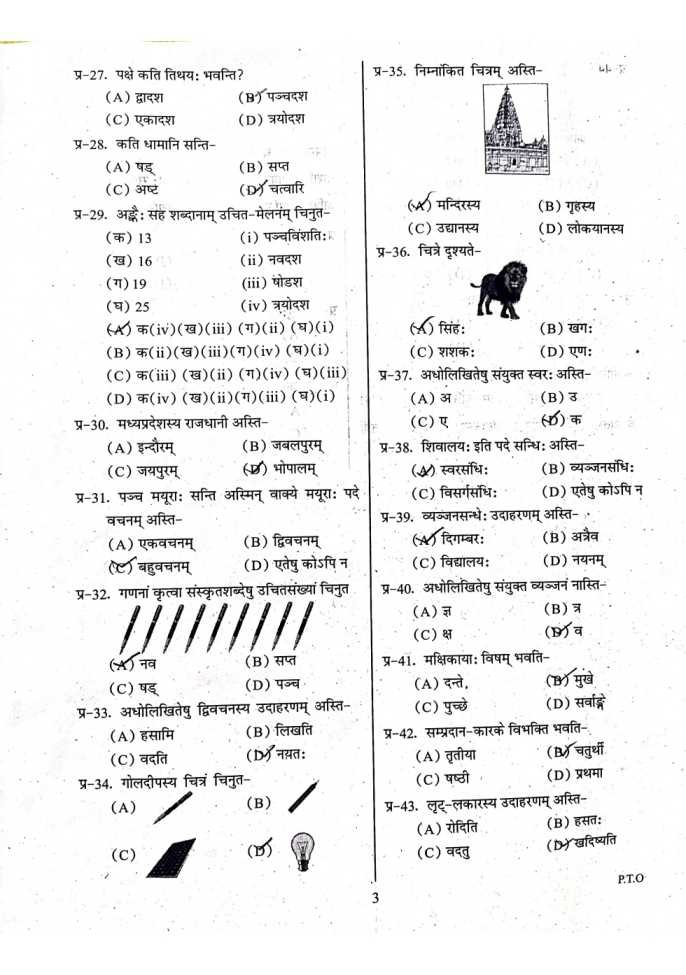 प्र-27. पक्षे कति तिथय: भवन्ति?
(A) द्वादश (B) पञ्चदश
(C) एकादश (D) त्रयोदश
प्र-28. कति धामानि सन्ति-
(A) षड् (B) सप्त
(C) अष्ट (D) चत्वारि
प्र-29. अङ्कै: सह शब्दानाम् उचित-मेलनम् चिनुत-
(क) 13 (i) पञ्चविंशति:
(ख) 16 (ii) नवदश
(ग) 19 (iii) षोडश
(घ) 25 (iv) त्रयोदश
(A) क(iv)(ख)(iii) (ग)(ii) (घ)(i)
(B) क(ii)(ख)(iii)(ग)(iv) (घ)(i)
(C) क(iii) (ख)(ii) (ग)(iv) (घ)(iii)
(D) क(iv) (ख)(ii)(ग)(iii) (घ)(i)
प्र-30. मध्यप्रदेशस्य राजधानी अस्ति-
(A) इन्दौरम् (B) जबलपुरम्
(C) जयपुरम् (D) भोपालम्
प्र-31. पञ्च मयूरा: सन्ति अस्मिन् वाक्ये मयूरा: पदे
वचनम् अस्ति-
(A) एकवचनम् (B) द्विवचनम्
(C) बहुवचनम् (D) एतेषु कोऽपि न
प्र-32. गणनां कृत्वा संस्कृतशब्देषु उचितसंख्यां चिनुत
(A) नव (B) सप्त
(C) षड् (D) पञ्च
प्र-33. अधोलिखितेषु द्विवचनस्य उदाहरणम् अस्ति-
(A) हसामि (B) लिखति
(C) वदति (D) नयत:
प्र-34. गोलदीपस्य चित्रं चिनुत-
(A) (B)
(C) (D)
प्र-35. निम्नांकित चित्रम् अस्ति-
(A) मन्दिरस्य (B) गृहस्य
(C) उद्यानस्य (D) लोकयानस्य
प्र-36. चित्रे दृश्यते-
(A) सिंह: (B) खग:
(C) शशक: (D) एण:
प्र-37. अधोलिखितेषु संयुक्त स्वर: अस्ति-
(A) अ (B) उ
(C) ए (D) क
प्र-38. शिवालय: इति पदे सन्धि: अस्ति-
(A) स्वरसंधि: (B) व्यञ्जनसंधि:
(C) विसर्गसंधि: (D) एतेषु कोऽपि न
प्र-39. व्यञ्जनसन्धे: उदाहरणम् अस्ति-
(A) दिगम्बर: (B) अत्रैव
(C) विद्यालय: (D) नयनम्
प्र-40. अधोलिखितेषु संयुक्त व्यञ्जनं नास्ति-
(A) ज्ञ (B) त्र
(C) क्ष (D) व
प्र-41. मक्षिकाया: विषम् भवति-
(A) दन्ते, (B) मुखे
(C) पुच्छे (D) सर्वाङ्गे
प्र-42. सम्प्रदान-कारके विभक्ति भवति-
(A) तृतीया (B) चतुर्थी
(C) षष्ठी (D) प्रथमा
प्र-43. लृट्-लकारस्य उदाहरणम् अस्ति-
(A) रोदिति (B) हसत:
(C) वदतु (D) खदिष्यति
P.T.O
3